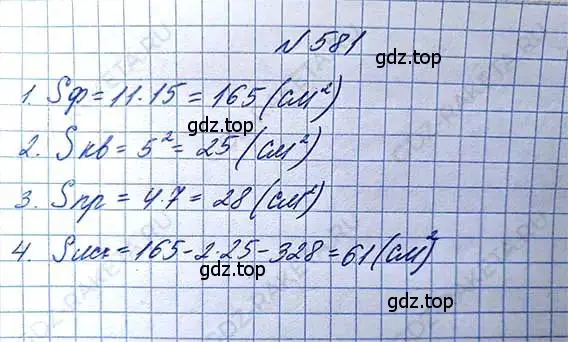 №581
gdz.top
1. Sф = 11·15 = 165 (см²)
gdz.top
2. Sкв = 5² = 25 (см²)
3. Sпр = 4·7 = 28 (см²)
gdz.top
4. Sист = 165-2·25-328 = 61 (см²)
gdz.top